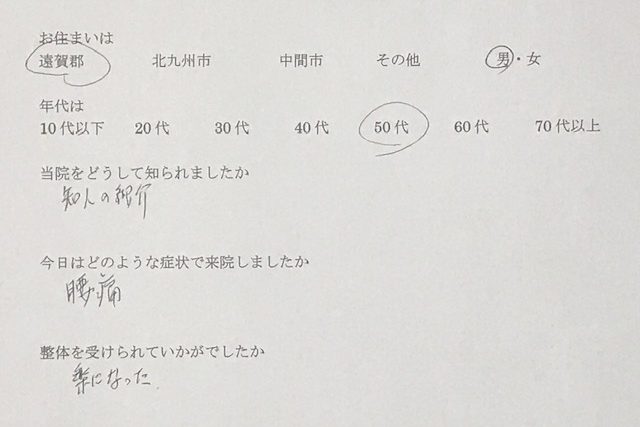 お住まいは
遠賀郡 北九州市 中間市 その他 男・女
年代は
10代以下 20代 30代 40代 50代 60代 70代以上
当院をどうして知られましたか
知人の紹介
今日はどのような症状で来院しましたか
腰痛
整体を受けられていかがでしたか
楽になった